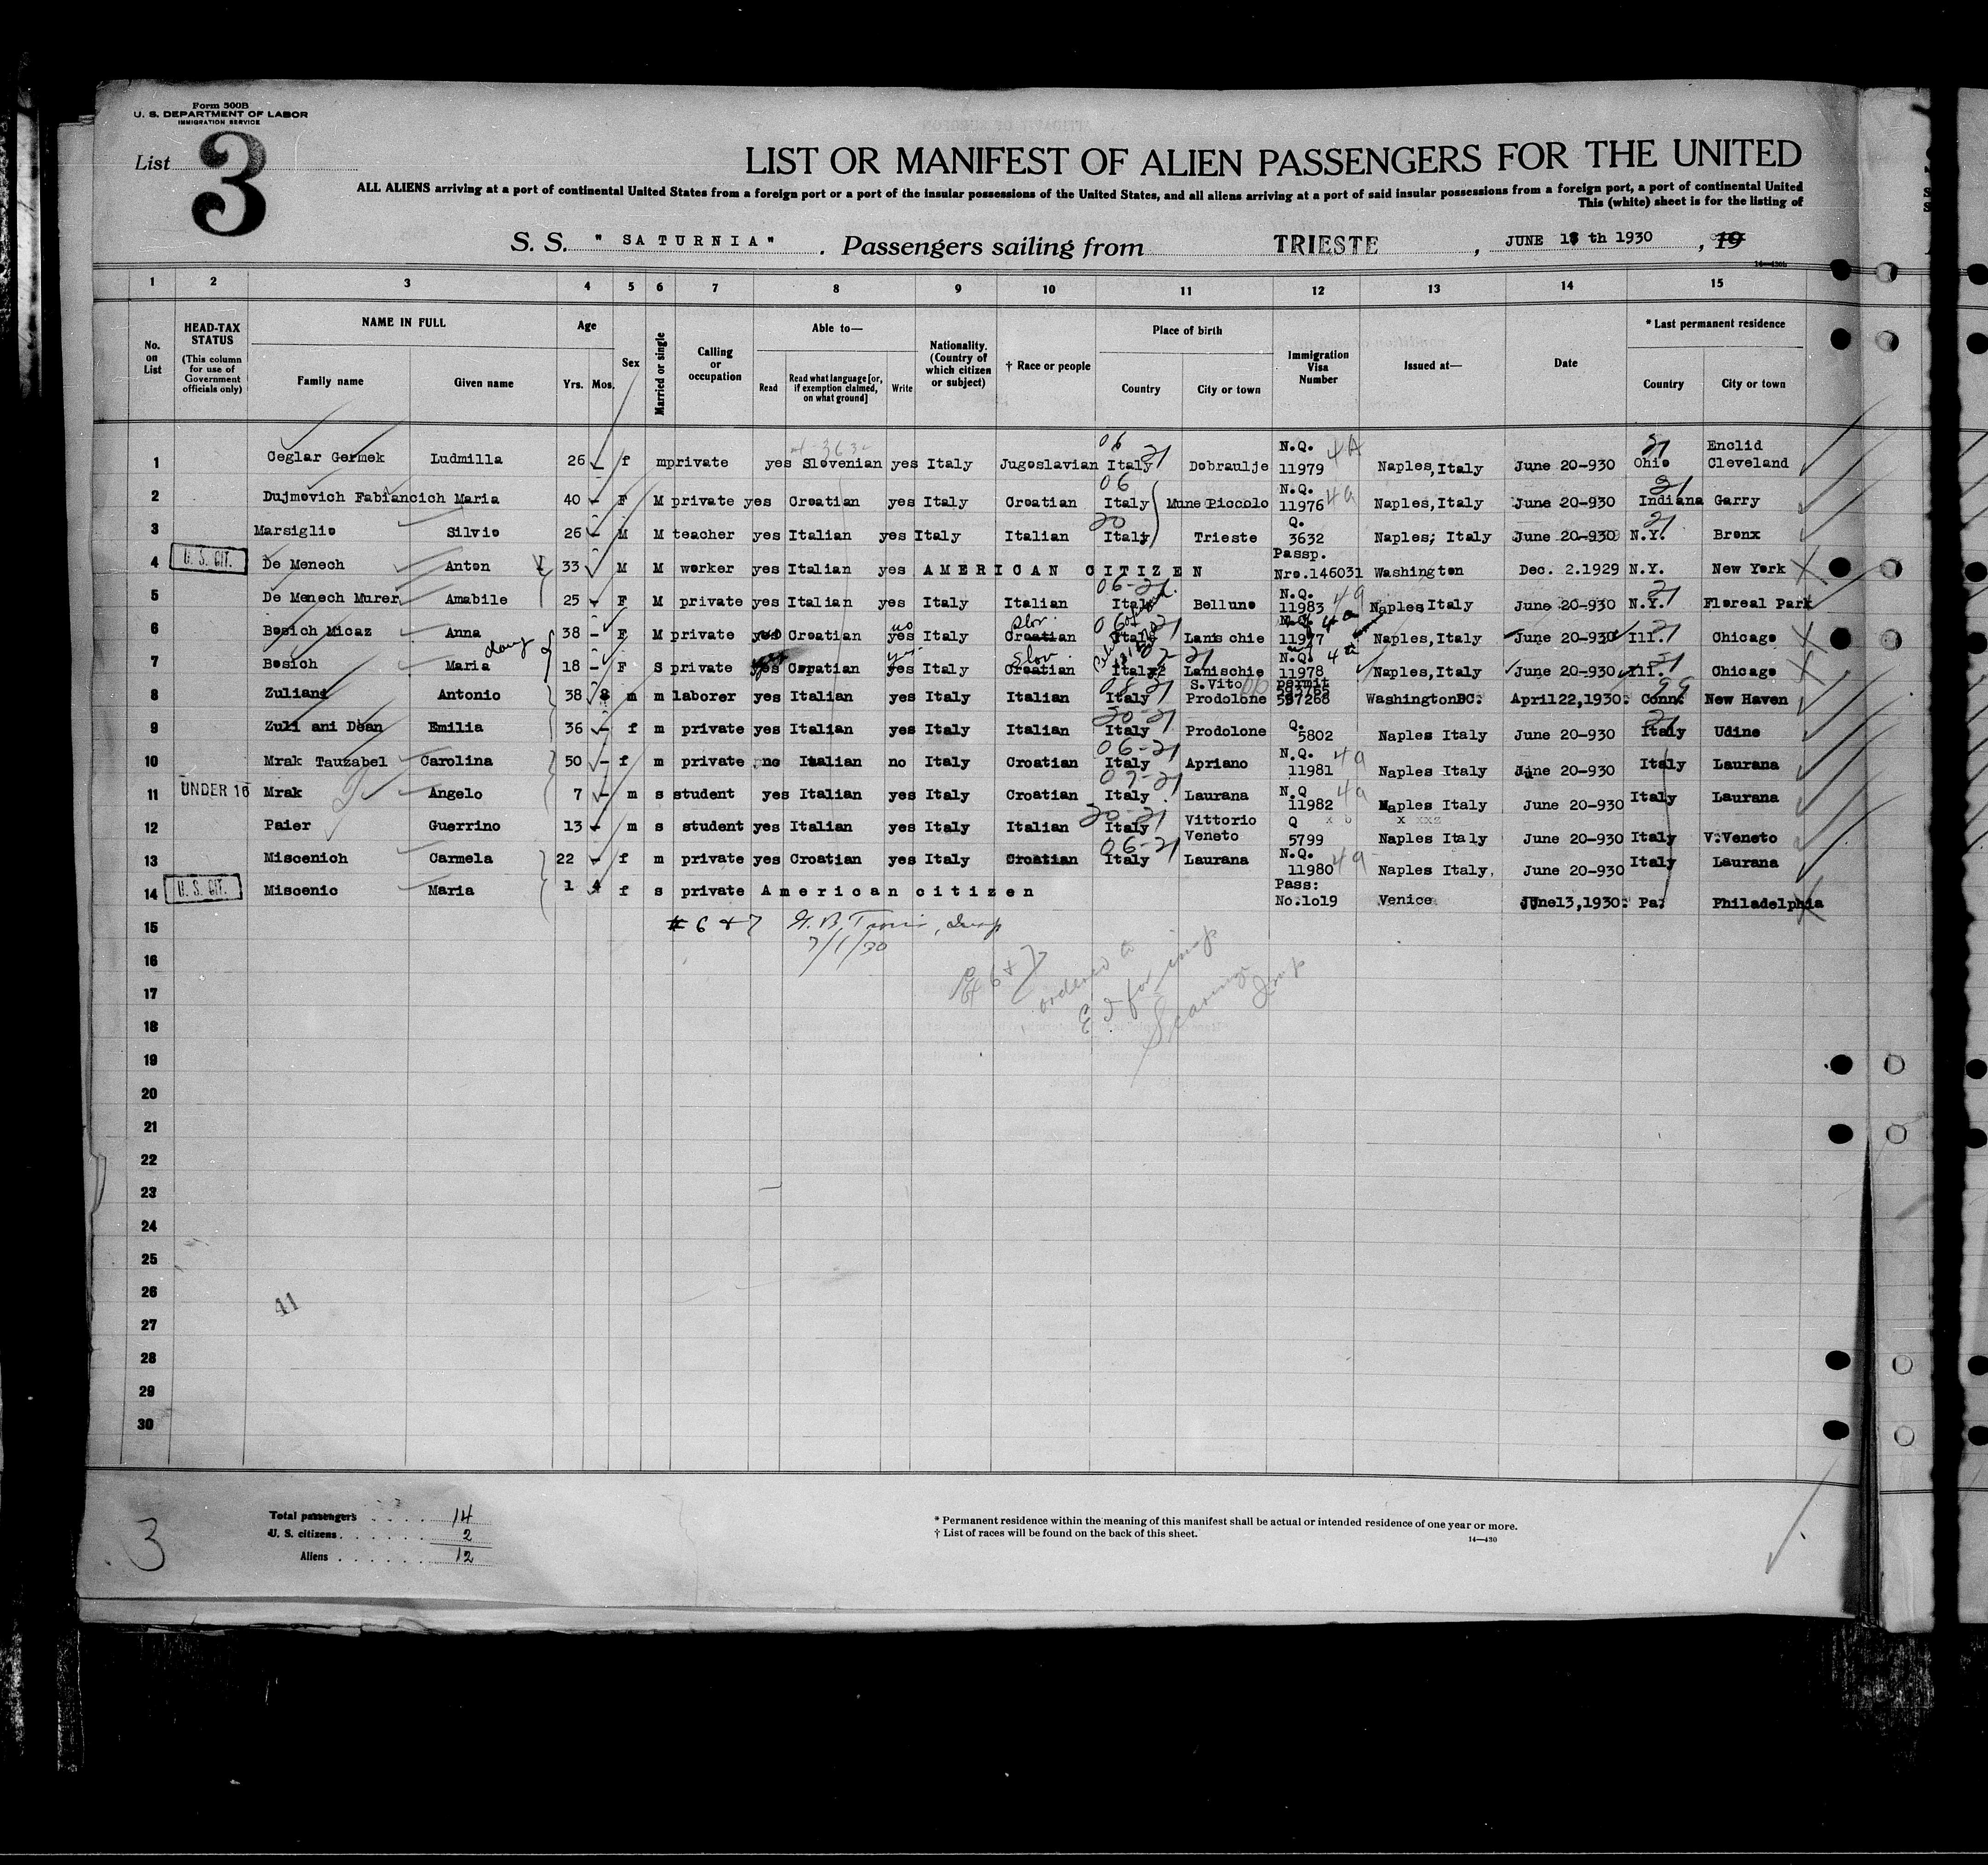 Form 500B
U. S. DEPARTMENT OF LABOR
IMMIGRATION SERVICE
List 3
LIST OR MANIFEST OF ALIEN PASSENGERS FOR THE UNITED
ALL ALIENS arriving at a port of continental United States from a foreign port or a port of the insular possessions of the United States, and all aliens arriving at a port of said insular possessions from a foreign port, a port of continental United
This (white) sheet is for the listing of
S. S. " SATURNIA" . Passengers sailing from TRIESTE , JUNE 18 th 1930 , 19
14—430b
1 2 3 4 5 6 7 8 9 10 11 12 13 14 15
No. on List
HEAD-TAX STATUS (This column for use of Government officials only)
NAME IN FULL
Family name Given name
Age
Yrs. Mos.
Sex
Married or single
Calling or occupation
Able to—
Read
Read what language [or, if exemption claimed, on what ground]
Write
Nationality. (Country of which citizen or subject)
† Race or people
Place of birth
Country City or town
Immigration Visa Number
Issued at—
Date
* Last permanent residence
Country City or town
1 Ceglar Germek Ludmilla 26 – f m private yes Slovenian yes Italy Jugoslavian Italy 06 21 Dobraulje N.Q. 11979 4A Naples,Italy June 20-930 21 Ohio Enclid Cleveland
2 Dujmovich Fabiancich Maria 40 – F M private yes Croatian yes Italy Croatian Italy 06 Mune Piccolo N.Q. 11976 4a Naples,Italy June 20-930 21 Indiana Garry
3 Marsiglio Silvio 26 – M M teacher yes Italian yes Italy Italian Italy 20 Trieste Q. 3632 Naples; Italy June 20-930 21 N.Y. Bronx
U. S. CIT.
4 De Menech Anton 33 M M worker yes Italian yes AMERICAN CITIZEN Passp. Nro.146031 Washington Dec. 2.1929 N.Y. New York
5 De Menech Murer Amabile 25 – F M private yes Italian yes Italy Italian Italy 06-21 Belluno N.Q. 11983 4a Naples Italy June 20-930 21 N.Y. Floreal Park
6 Bosich Micaz Anna 38 – F M private yes no Croatian yes no Italy Croatian Slov. Italy 06 21 Lanis chie N.Q. 11977 4a Naples,Italy June 20-930 21 Ill. Chicago
7 Bosich Maria daug 18 – F S private yes Croatian yes yes Italy Croatian Slov. Italy 21 Lanischie N.Q. 11978 4a Naples,Italy June 20-930 21 Ill. Chicago
8 Zuliani Antonio 38 8 m m laborer yes Italian yes Italy Italian Italy 08-21 S.Vito Prodolone permit 597268 WashingtonDC. April22,1930: 99 Conn. New Haven
9 Zuli ani Dean Emilia 36 – f m private yes Italian yes Italy Italian Italy 20-21 Prodolone Q. 5802 Naples Italy June 20-930 21 Italy Udine
10 Mrak Tauzabel Carolina 50 – f m private no Italian no Italy Croatian Italy 06-21 Apriano N.Q. 11981 4a Naples Italy June 20-930 Italy Laurana
UNDER 16
11 Mrak Angelo 7 – m s student yes Italian yes Italy Croatian Italy 07-21 Laurana N.Q 11982 4a Naples Italy June 20-930 Italy Laurana
12 Paier Guerrino 13 – m s student yes Italian yes Italy Italian Italy 20-21 Vittorio Veneto Q 5799 Naples Italy June 20-930 Italy V.Veneto
13 Miscenich Carmela 22 – f m private yes Croatian yes Italy Croatian Italy 06-21 Laurana N.Q. 11980 4a Naples Italy, June 20-930 Italy Laurana
U. S. CIT.
14 Miscenic Maria 1 4 f s private American citizen Pass: No.1o19 Venice JUne13,1930: Pa: Philadelphia
15 # 6 & 7
7/1/30
16 6 & 7 ordered to
17 E I for insp
18
19
20
21
22
23
24
25
26
41
27
28
29
30
Total passengers . . . . 14
U. S. citizens . . . . . . 2
Aliens . . . . . . 12
3
* Permanent residence within the meaning of this manifest shall be actual or intended residence of one year or more.
† List of races will be found on the back of this sheet.
14—430